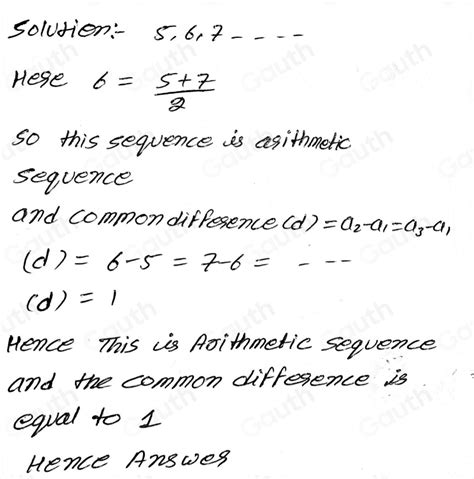 Solution:- 5, 6, 7 - - - -
Here 6 = 5+7 / 2
so this sequence is arithmetic
sequence
and common difference (d) = a₂-a₁ = a₃-a₁
(d) = 6-5 = 7-6 = - - -
(d) = 1
Hence This is Arithmetic sequence
and the common difference is
equal to 1
Hence Answer